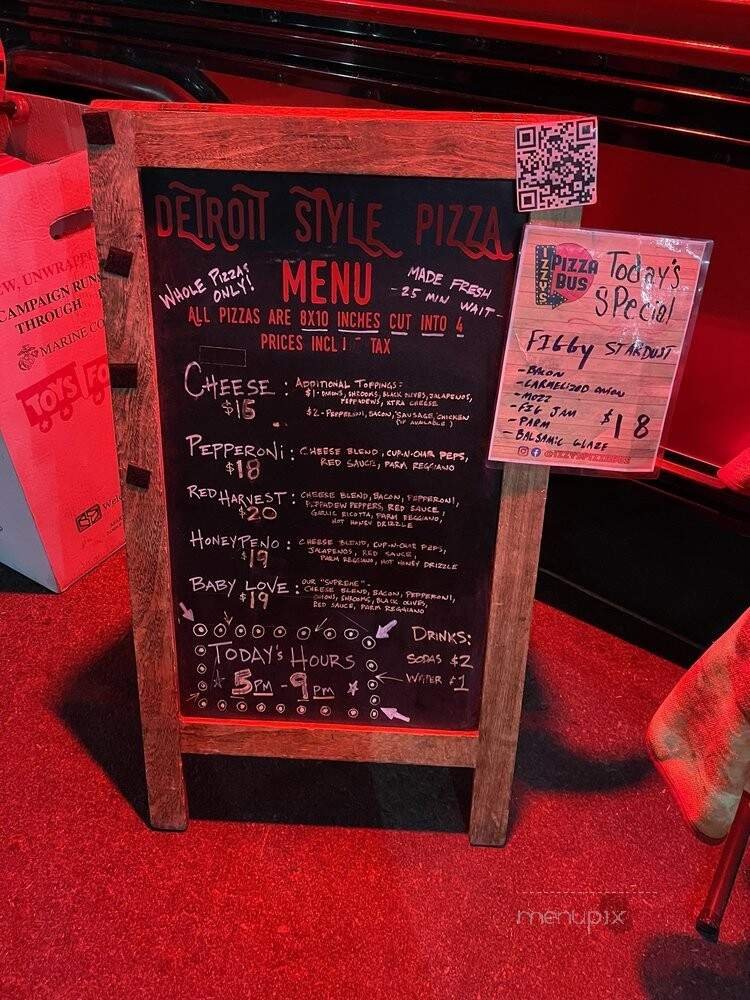 DETROIT STYLE PIZZA
MENU
WHOLE PIZZAS
ONLY!
MADE FRESH
- 25 MIN WAIT -
ALL PIZZAS ARE 8X10 INCHES CUT INTO 4
PRICES INCL TAX
CHEESE :
$15
ADDITIONAL TOPPINGS:
$1 - ONIONS, SHROOMS, BLACK OLIVES, JALAPENOS,
PEPPADEWS, XTRA CHEESE
$2 - PEPPERONI, BACON, SAUSAGE, CHICKEN
(IF AVAILABLE)
PEPPERONI :
$18
CHEESE BLEND, CUP-N-CHAR PEPS,
RED SAUCE, PARM REGGIANO
RED HARVEST :
$20
CHEESE BLEND, BACON, PEPPERONI,
PEPPADEW PEPPERS, RED SAUCE,
GARLIC RICOTTA, PARM REGGIANO,
HOT HONEY DRIZZLE
HONEYPENO :
$19
CHEESE BLEND, CUP-N-CHAR PEPS,
JALAPENOS, RED SAUCE,
PARM REGGIANO, HOT HONEY DRIZZLE
BABY LOVE :
$19
OUR "SUPREME" -
CHEESE BLEND, BACON, PEPPERONI,
ONIONS, SHROOMS, BLACK OLIVES,
RED SAUCE, PARM REGGIANO
TODAY'S HOURS
5PM - 9PM
DRINKS:
SODAS $2
WATER $1
IZZY'S
PIZZA
BUS
Today's
Special
FIGGY STARDUST
- BACON
- CARMELIZED ONION
- MOZZ
- FIG JAM
- PARM
- BALSAMIC GLAZE
$18
@IZZYSPIZZABUS
NEW, UNWRAPPED
CAMPAIGN RUNS
THROUGH
MARINE CO
TOYS FO
menupix